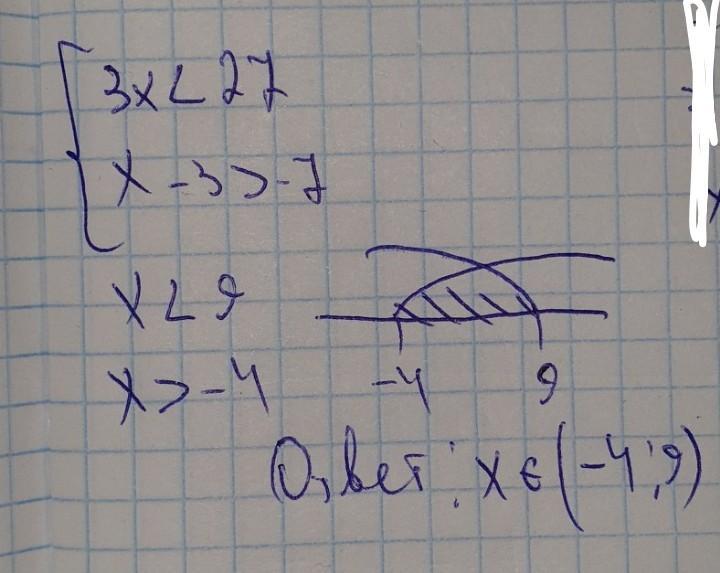 3x < 27
x - 3 > -7
x < 9
x > -4
-4 9
Ответ: x ∈ (-4; 9)